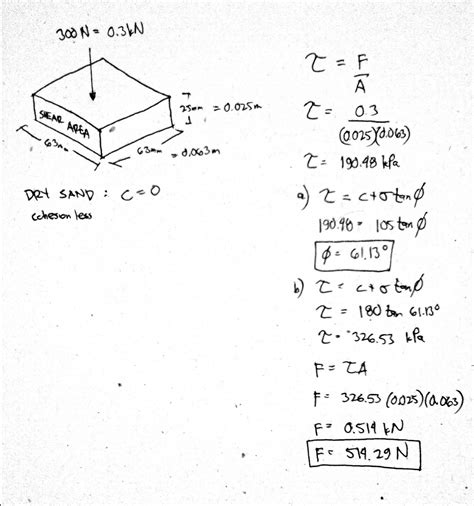 300 N = 0.3 kN
SHEAR AREA
25mm = 0.025m
63mm
63mm = 0.063m
DRY SAND : C = 0
cohesionless
τ = F/A
τ = 0.3/(0.025)(0.063)
τ = 190.48 kPa
a) τ = c + σ tan φ
190.48 = 105 tan φ
φ = 61.13°
b) τ = c + σ tan φ
τ = 180 tan 61.13°
τ = 326.53 kPa
F = τA
F = 326.53 (0.025)(0.063)
F = 0.514 kN
F = 514.29 N